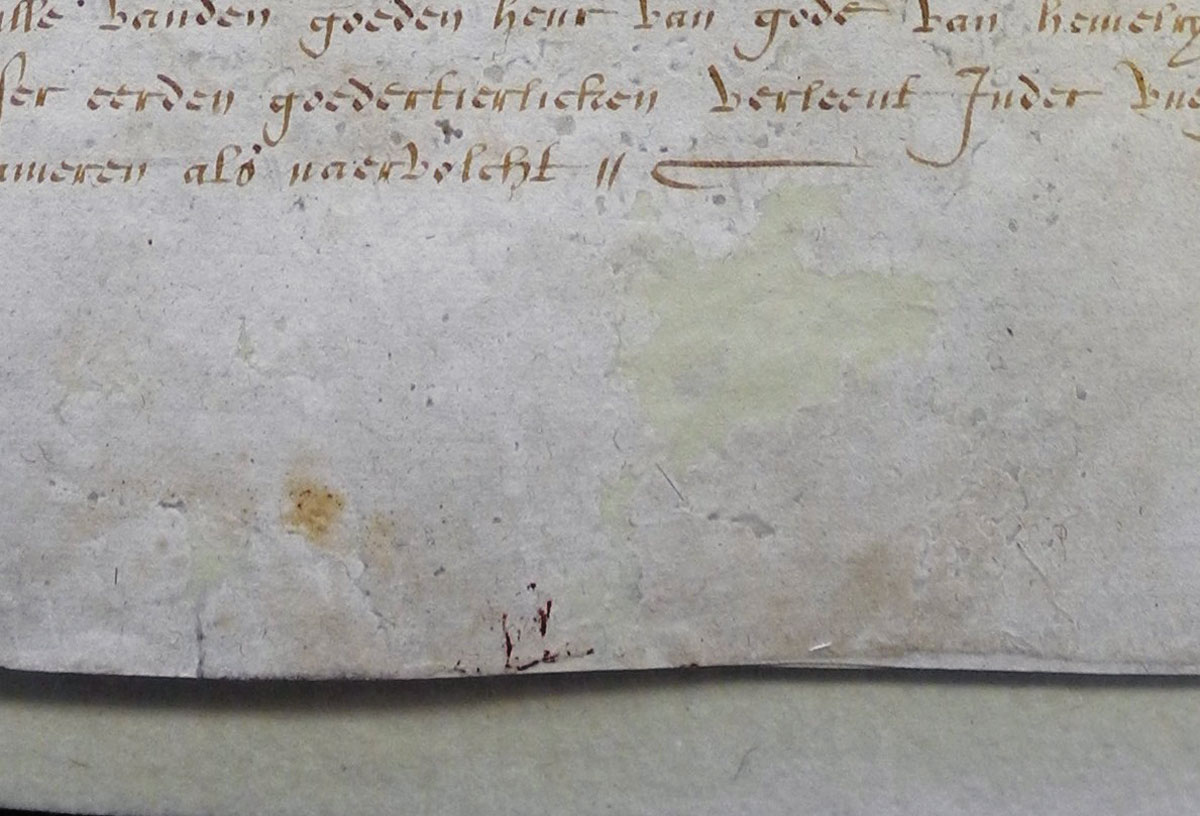 vanden goeden heur van gode van hemelry
ser eerden goedertierlicken verleent Inder
ameren als naervolcht //